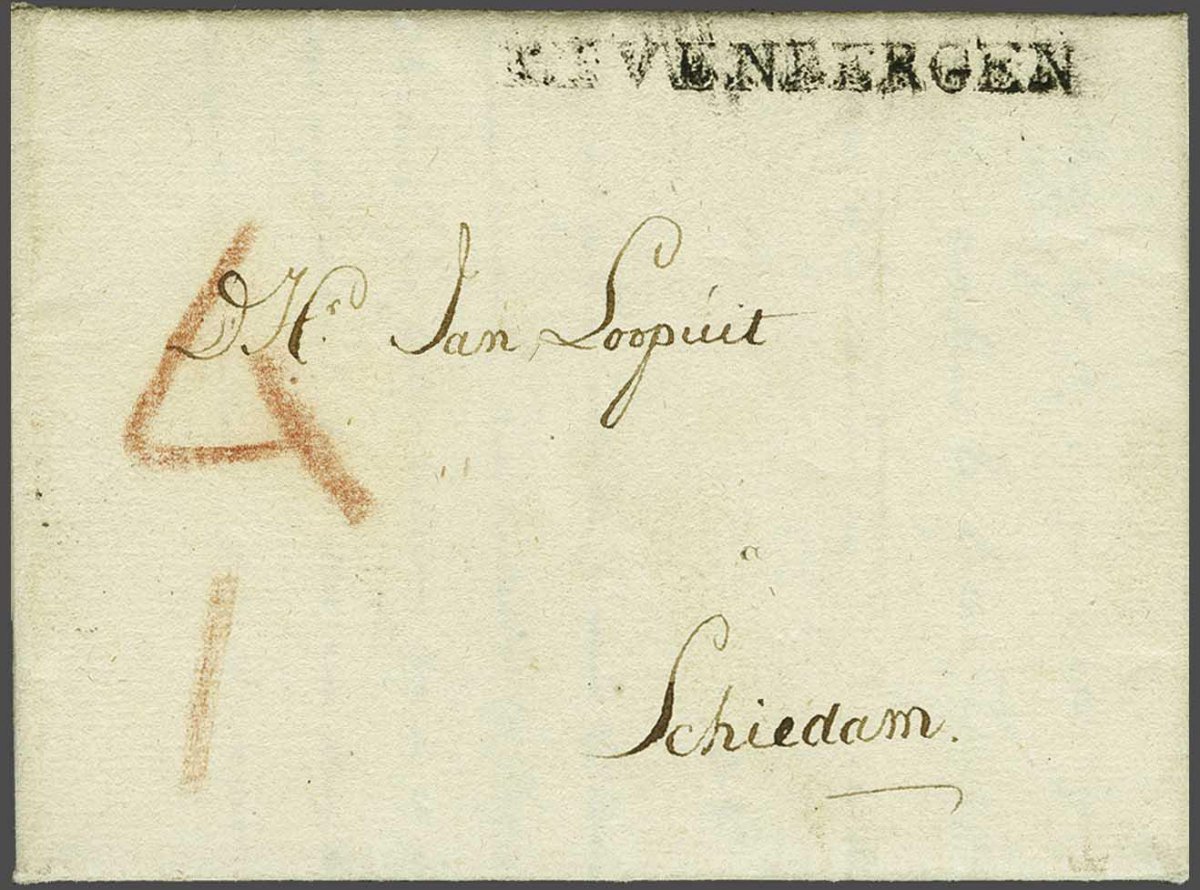 ZEVENBERGEN
4
D Hr. Jan Loopuit
a
1
Schiedam.